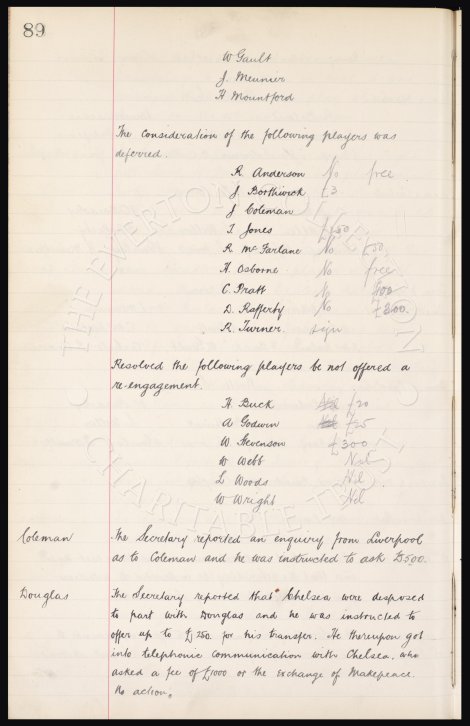 89
W Gault
J. Meunier
H Mountford
The consideration of the following players was
deferred.
R. Anderson No free
J Borthwick £3
J Coleman
T. Jones £150
R. McFarlane No £50
H. Osborne No free
C. Pratt No 100
D. Rafferty No £300.
R. Turner. sign
Resolved the following players be not offered a
re-engagement.
H. Buck Nil £20
A Godwin Nil £25
W Stevenson £300
W Webb Nil
L Woods Nil
W Wright Nil
Coleman The Secretary reported an enquiry from Liverpool
as to Coleman and he was instructed to ask £500.
Douglas The Secretary reported that Chelsea were disposed
to part with Douglas and he was instructed to
offer up to £250. for his transfer. He thereupon got
into telephonic communication with Chelsea, who
asked a fee of £1000 or the exchange of Makepeace.
No action.
THE EVERTON COLLECTION
CHARITABLE TRUST